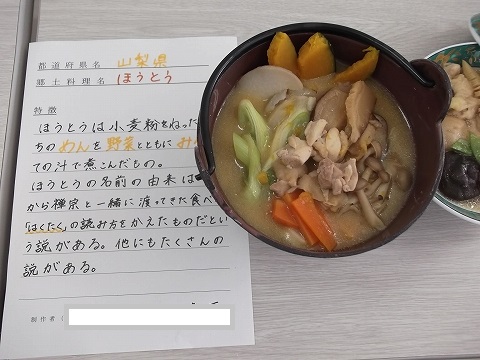 都道府県名 山梨県
郷土料理名 ほうとう
特徴
ほうとうは小麦粉をねった
ちのめんを野菜とともにみ
ての汁で煮こんだもの。
ほうとうの名前の由来は
から禅宗と一緒に渡ってきた食べ
「はくたく」の読み方をかえたものだとい
う説がある。他にもたくさんの
説がある。
制作者(